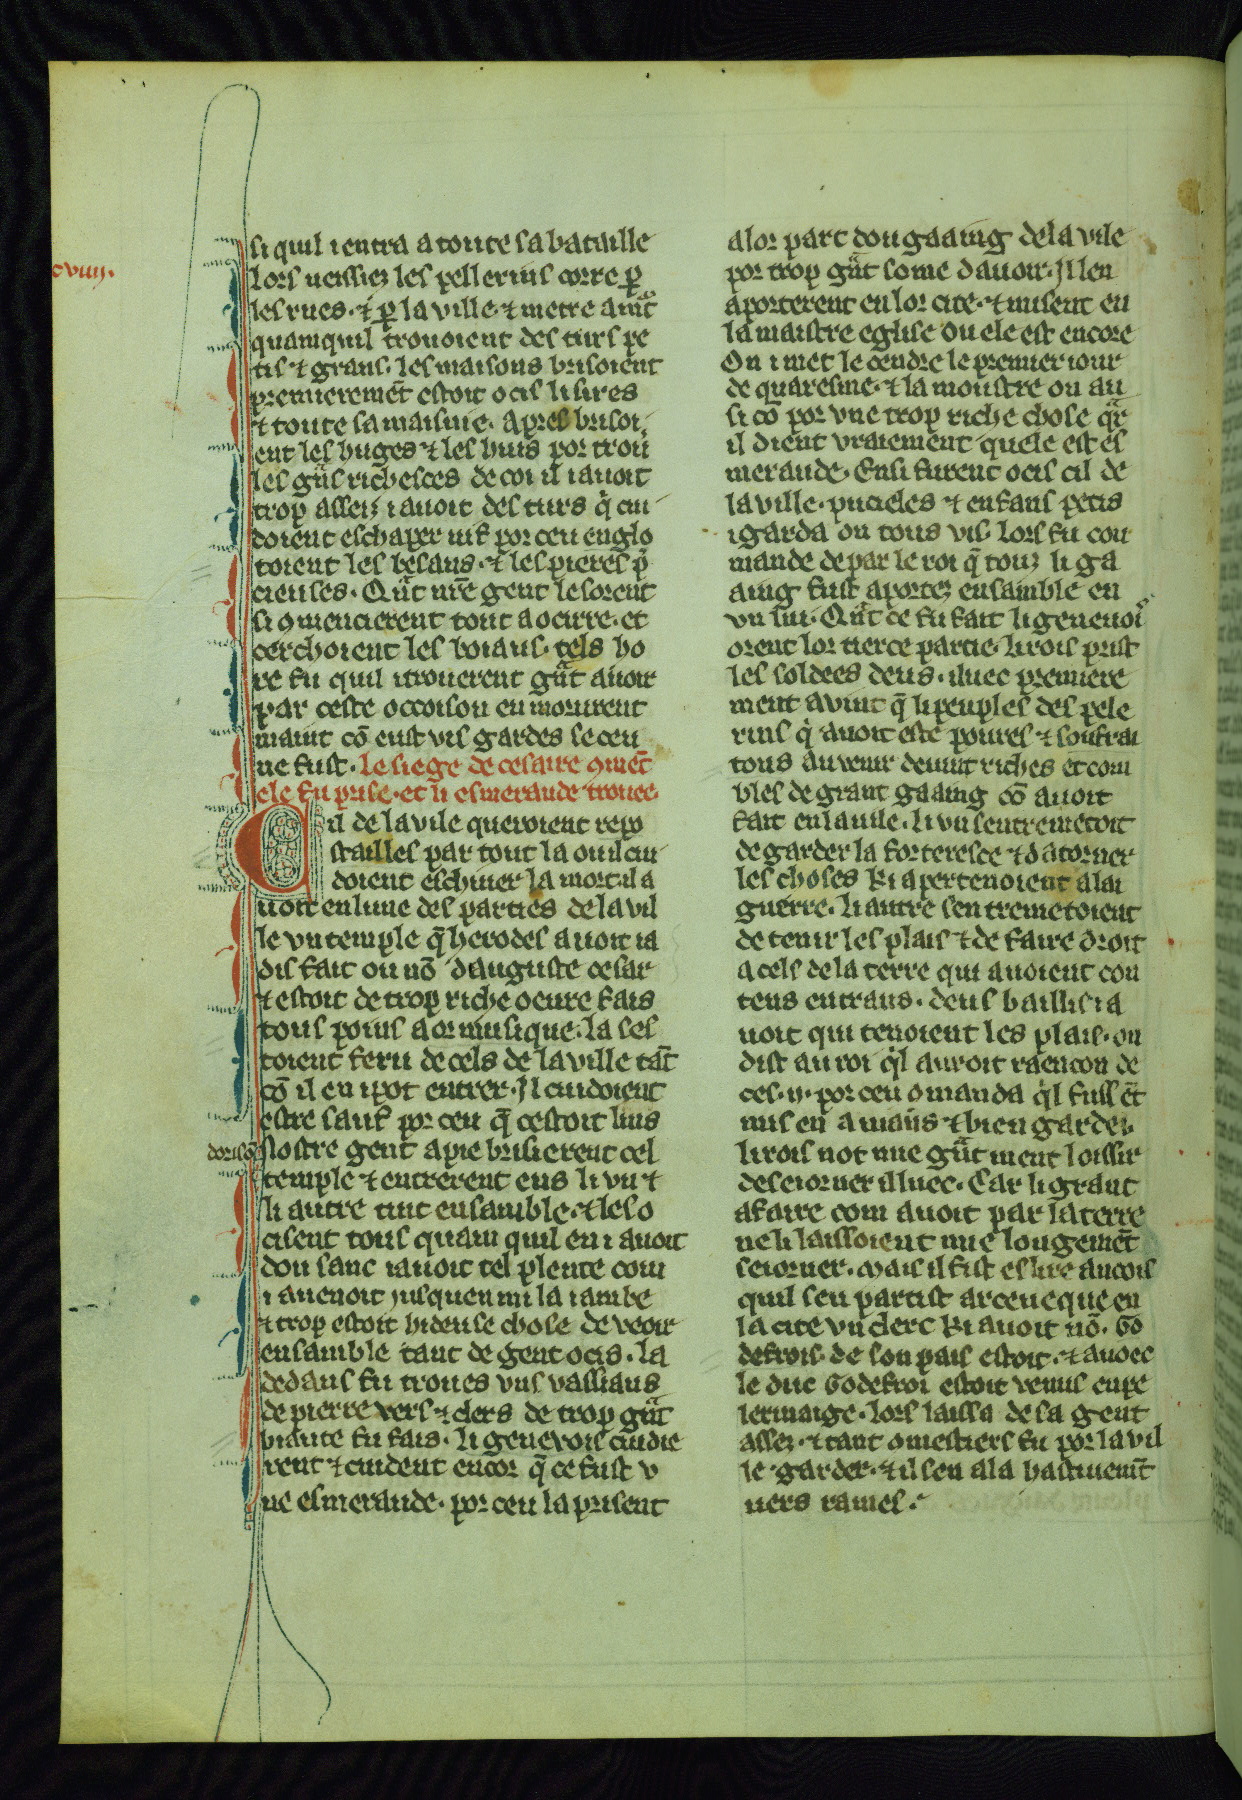 cviij.
si quil i entra a toute sa bataille
lors ueissiez les pellerins corre ꝑ
les rues· ⁊ ꝑ la ville· ⁊ metre a mͥt
quanquil trouoient des turs pe
tis ⁊ grans· les maisons brisoient
premieremēt estoit ocis li sires
⁊ toute sa maisnie· apres brisoi
ent les huges ⁊ les huis por trou
les gᷓns richesces de coi il i auoit
trop assez i auoit des turs q̇ cui
doient eschaper uif por ceu englo
toient les besans· ⁊ les pieres p̄
cieuses· Qᷓnt nr̄e gent le sorent
si ꝯmencierent tout a oeurre· et
cerchoient les boiaus· tels ho
re fu quil i trouerent gᷓnt auoir
par ceste occoison en morurent
maint cō eust vis gardes se ceu
ne fust· le siege de cesaire ꝯmēt
ele fu prise· et li esmeraude trouee·
Cil de la vile queroient repo
stailles par tout la ou il cui
doient eschiuer la mort· il a
uoit en lune des parties de la vil
le vn temple q̄ herodes auoit ia
dis fait ou nō dauguste cesar
⁊ estoit de trop riche oeure fais
tous poins a or musique· la ses
toient feru de cels de la ville tāt
cō il en i pot entrer· Il cuidoient
estre sauf por ceu q̄ cestoit lius
doriſō Nostre gent a pie brisierent cel
temple ⁊ entrerent ens li vn ⁊
li autre tuit ensamble· ⁊ les o
cisent tous quam quil en i auoit
dou sanc i auoit tel plente com
i auenoit jusquen mi la iambe
⁊ trop estoit hideuse chose de veoir
ensamble tant de gent ocis· la
dedans fu troues vns vassiaus
de pierre vers ⁊ clers de trop gᷓnt
biaute fu fais· li genevois cuidie
rent ⁊ cuident encor q̄ ce fust v
ne esmeraude· por ceu la prisent
a lor part dou gaaing de la vile
por trop gᷓnt some dauoir· Il len
aporterent en lor cite· ⁊ misent en
la maistre eglise ou ele est encore
On i met le cendre le premier iour
de quaresme· ⁊ la moustre on au
si cō por vne trop riche chose qᷓr
il dient vraiement quele est es
meraude· Ensi furent ocis cil de
la ville· puceles ⁊ enfans petis
i garda on tous vis· lors fu con
mande de par le roi q̄ touz li ga
aing fust aportez ensamble en
vn liu· Qᷓnt ce fu fait li geneuois
orent lor tierce partie· li rois prist
les soldees deus· iluec premiere
ment auint q̄ li peuples des pele
rins q̇ auoit este poures ⁊ soufrai
tous au venir deuint riches et com
bles de grant gaaing cō auoit
fait en la uile· li vn sentremetoit
de garder la forteresce ⁊ datorner
les choses ki apertenoient a lai
guerre· li autre sen tremetoient
de tenir les plais ⁊ de faire droit
a cels de la terre qui auoient con
tens entraus· deus baillis i a
uoit qui tenoient les plais· on
dist au roi q̇l auroit raencon de
ces· ij· por ceu ꝯmanda q̇l fussēt
mis en amaīs ⁊ bien garder·
li rois not mie gᷓnt ment loissir
de seiorner illuec· Car li grant
afaire com auoit par la terre
ne li laissoient mie longemēt
seiorner· Mais il fist eslire ancois
quil sen partist arceueque en
la cite vn clerc ki auoit nō· Go
defrois· de son pais estoit· ⁊ auoec
le duc Godefroi estoit venus en pe
lermaige· lors laissa de sa gent
assez· ⁊ tant ꝯ mestiers fu por la vil
le garder· ⁊ il sen ala hastiuemt̄
uers rames·